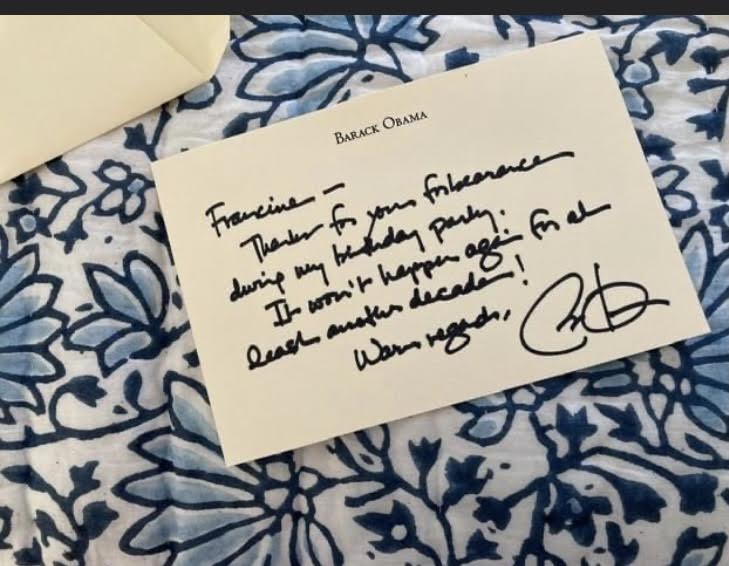 BARACK OBAMA
Francine —
Thanks for your forbearance
during my birthday party.
It won't happen again for at
least another decade!
Warm regards,